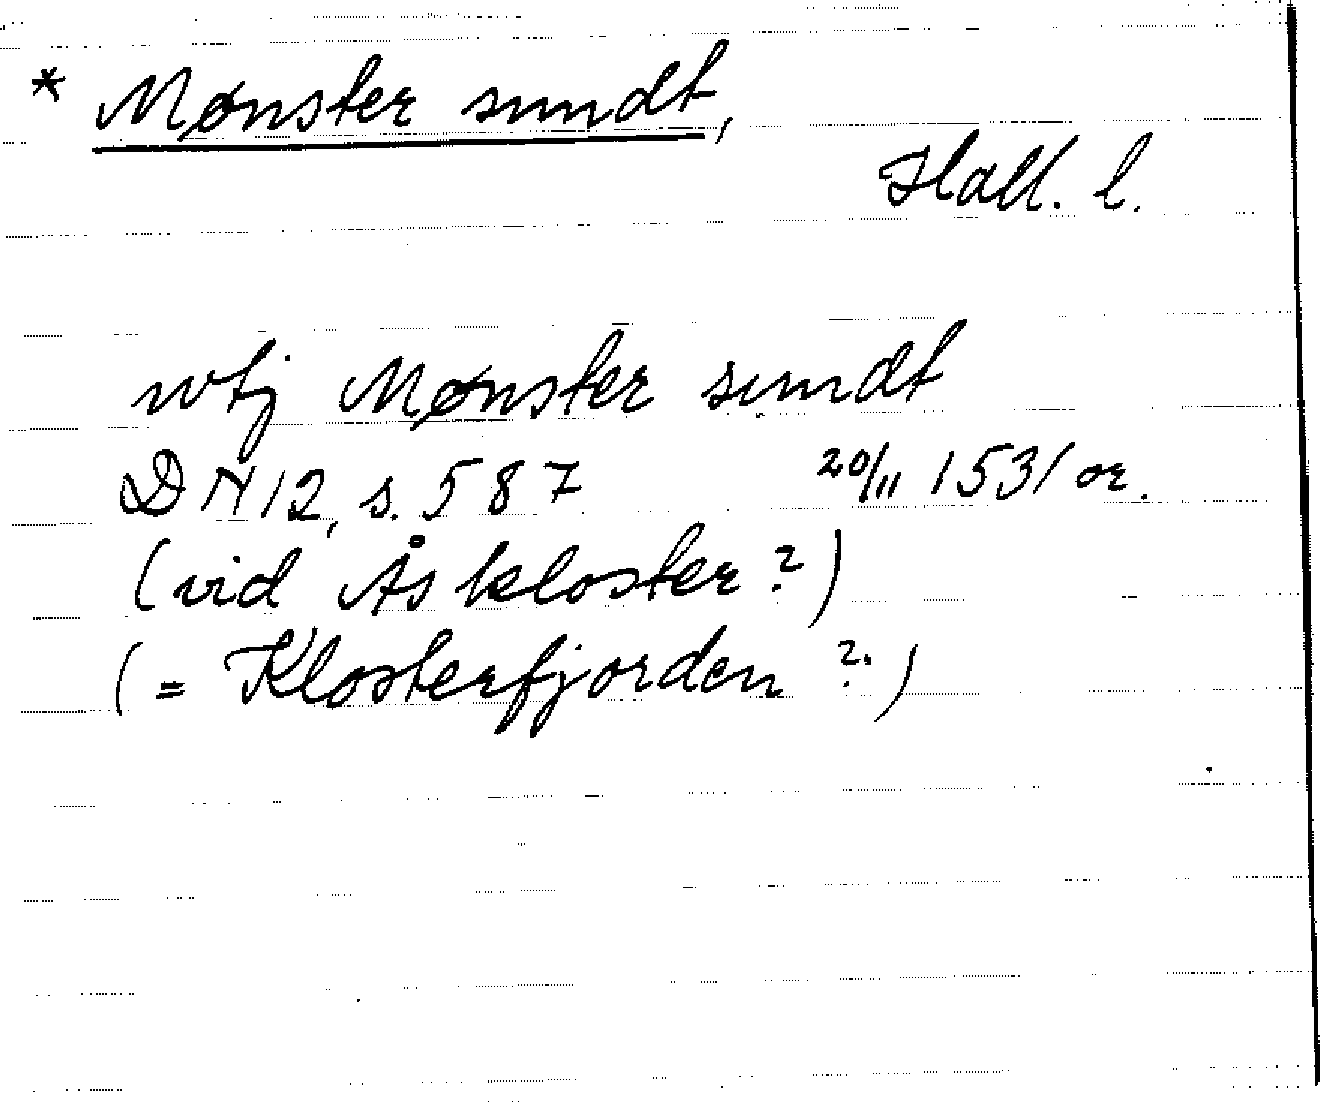 * Mønster sundt,
Hall. l.
wtj Mønster sundt
DN 12, s. 587 20/11 1531 or.
(vid Ås kloster?)
(= Klosterfjorden?)